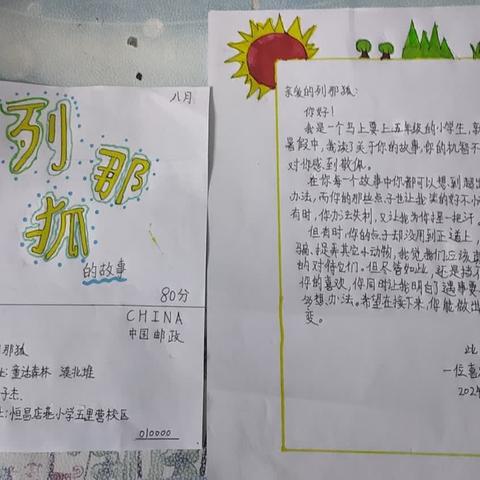 八月
列那狐
的故事
80分
CHINA
中国邮政
那狐
童话森林
子杰
恒昌店巷小学五里营校区
010000
亲爱的列那狐:
你好!
我是一个马上要上五年级的小学生,
暑假中,我读了关于你的故事,你的机智不
对你感到敬佩。
在你每个故事中你都可以想到
办法,而你的那些点子也让我
有时,你办法失利,又让我为你捏一把汗。
但有时,你的点子却没用到正道上,
骗、捉弄其它小动物,我觉我们应该
的对待它们。但尽管如此,还是挡不
你的喜欢,你同时让我明白了遇事要
多想办法。希望在接下来,你能做出
变。
此
一位喜
202